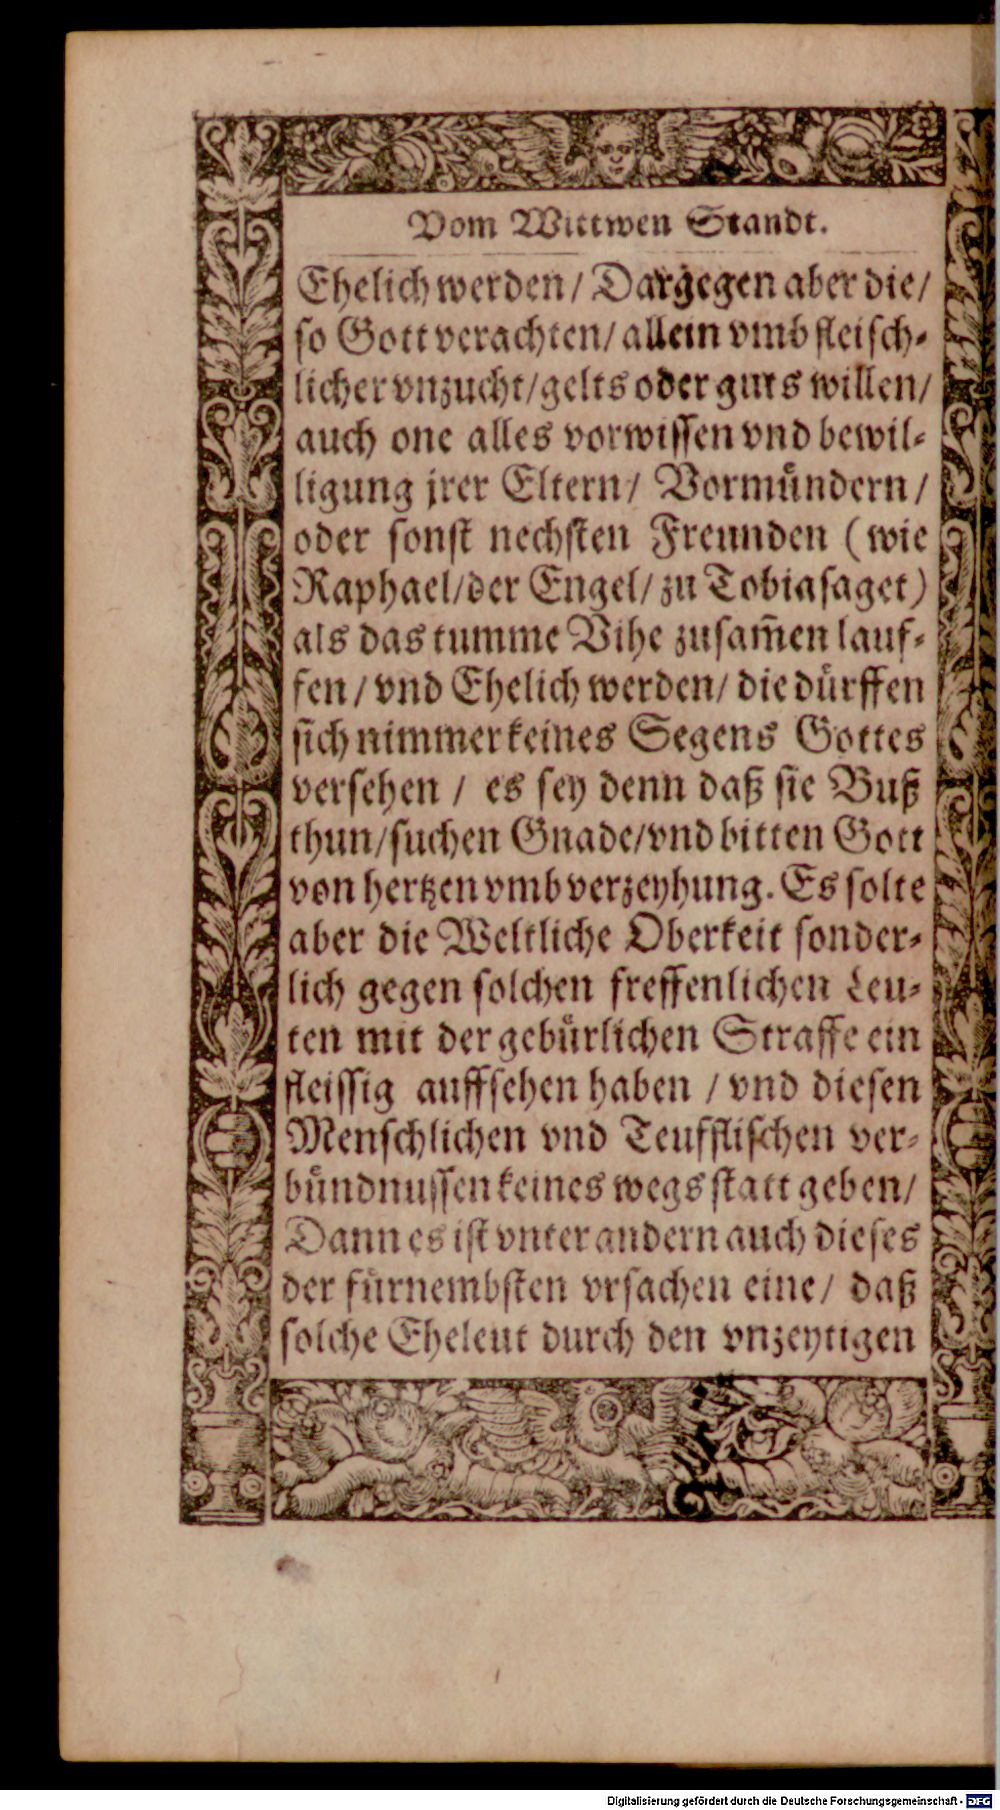 Vom Wittwen Standt.
Ehelich werden / Dargegen aber die /
so Gott verachten / allein vmb fleisch⸗
licher vnzucht / gelts oder guts willen /
auch one alles vorwissen vnd bewil⸗
ligung jrer Eltern / Vormuͤndern /
oder sonst nechsten Freunden (wie
Raphael / der Engel / zu Tobia saget)
als das tumme Vihe zusam̄en lauf⸗
fen / vnd Ehelich werden / die duͤrffen
sich nimmer keines Segens Gottes
versehen / es sey denn daß sie Buß
thun / suchen Gnade / vnd bitten Gott
von hertzen vmb verzeyhung. Es solte
aber die Weltliche Oberkeit sonder⸗
lich gegen solchen freffenlichen Leu⸗
ten mit der gebuͤrlichen Straffe ein
fleissig auffsehen haben / vnd diesen
Menschlichen vnd Teufflischen ver⸗
buͤndnussen keines wegs statt geben /
Dann es ist vnter andern auch dieses
der fuͤrnembsten vrsachen eine / daß
solche Eheleut durch den vnzeytigen
Digitalisierung gefördert durch die Deutsche Forschungsgemeinschaft - DFG